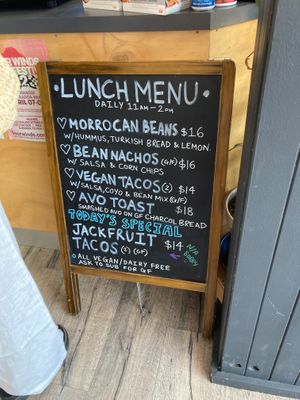 LUNCH MENU
DAILY 11AM - 2PM
MORROCAN BEANS $16
W/HUMMUS, TURKISH BREAD & LEMON.
BEAN NACHOS (GF) $16
W/ SALSA & CORN CHIPS
VEGAN TACOS (2) $14
W/SALSA, COYO & BEAN MIX (G/F)
AVO TOAST $18
SMASHED AVO ON GF CHARCOL BREAD
TODAY'S SPECIAL
JACKFRUIT
TACOS (2) (GF) $14
ALL VEGAN/DAIRY FREE
ASK TO SUB FOR GF